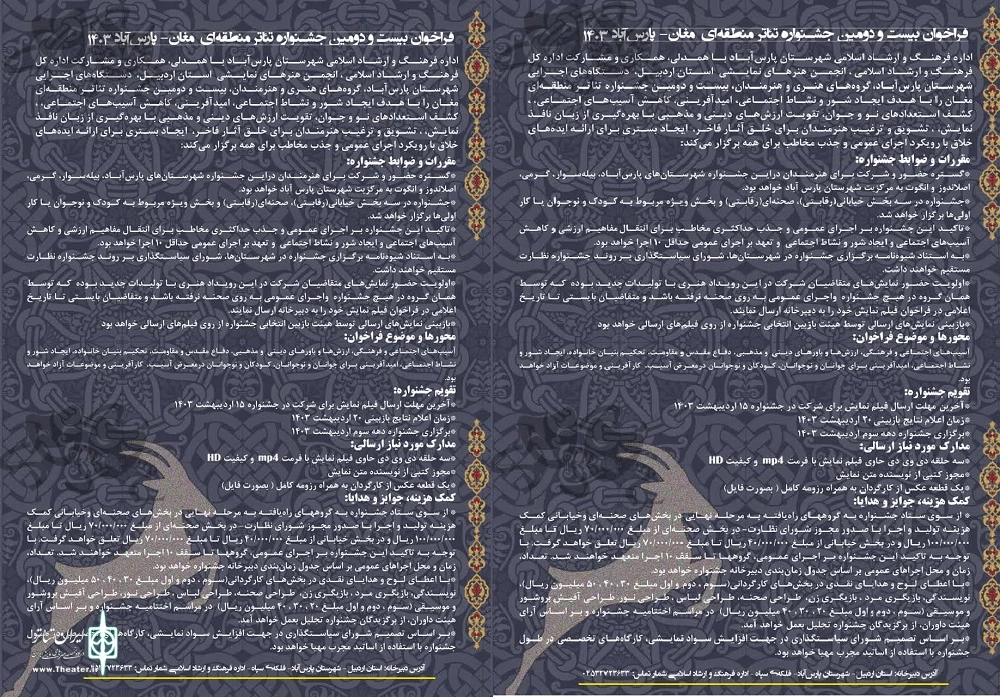 فراخوان بیست و دومین جشنواره تئاتر منطقه‌ای مغان- پارس‌آباد ۱۴۰۳
اداره فرهنگ و ارشاد اسلامی شهرستان پارس‌آباد با همدلی، همکاری و مشارکت اداره کل
فرهنگ و ارشاد اسلامی ، انجمن هنرهای نمایشی استان اردبیل، دستگاه‌های اجرایی
شهرستان پارس‌آباد، گروه‌های هنری و هنرمندان، بیست و دومین جشنواره تئاتر منطقه‌ای
مغان را با هدف ایجاد شور و نشاط اجتماعی، امیدآفرینی، کاهش آسیب‌های اجتماعی، ،
کشف استعدادهای نو و جوان، تقویت ارزش‌های دینی و مذهبی با بهره‌گیری از زبان نافذ
نمایش، ، تشویق و ترغیب هنرمندان برای خلق آثار فاخر، ایجاد بستری برای ارائه ایده‌های
خلاق با رویکرد اجرای عمومی و جذب مخاطب برای همه برگزار می‌کند:
مقررات و ضوابط جشنواره:
*گستره حضور و شرکت برای هنرمندان دراین جشنواره شهرستان‌های پارس‌آباد، بیله‌سوار، گرمی،
اصلاندوز و انگوت به مرکزیت شهرستان پارس آباد خواهد بود.
*جشنواره در سه بخش خیابانی(رقابتی)، صحنه‌ای(رقابتی) و بخش ویژه مربوط به کودک و نوجوان یا کار
اولی‌ها برگزار خواهد شد.
*تاکید این جشنواره بر اجرای عمومی و جذب حداکثری مخاطب برای انتقال مفاهیم ارزشی و کاهش
آسیب‌های اجتماعی و ایجاد شور و نشاط اجتماعی و تعهد بر اجرای عمومی حداقل ۱۰ اجرا خواهد بود.
*به استناد شیوه‌نامه برگزاری جشنواره در شهرستان‌ها، شورای سیاستگذاری بر روند جشنواره نظارت
مستقیم خواهند داشت.
*اولویت حضور نمایش‌های متقاضیان شرکت در این رویداد هنری با تولیدات جدید بوده که توسط
همان گروه در هیچ جشنواره واجرای عمومی به روی صحنه نرفته باشد و متقاضیان بایستی تا تاریخ
اعلامی در فراخوان فیلم نمایش خود را به دبیرخانه ارسال نمایند.
*بازبینی نمایش‌های ارسالی توسط هیئت بازبین انتخابی جشنواره از روی فیلم‌های ارسالی خواهد بود
محورها و موضوع فراخوان:
آسیب‌های اجتماعی و فرهنگی، ارزش‌ها و باورهای دینی و مذهبی، دفاع مقدس و مقاومت، تحکیم بنیان خانواده، ایجاد شور و
نشاط اجتماعی، امیدآفرینی برای جوانان و نوجوانان، کودکان و نوجوانان درمعرض آسیب، کارآفرینی و موضوعات آزاد خواهد
بود.
تقویم جشنواره:
*آخرین مهلت ارسال فیلم نمایش برای شرکت در جشنواره ۱۵ اردیبهشت ۱۴۰۳
*زمان اعلام نتایج بازبینی ۲۰ اردیبهشت ۱۴۰۳
*برگزاری جشنواره دهه سوم اردیبهشت ۱۴۰۳
مدارک مورد نیاز ارسالی:
*سه حلقه دی وی دی حاوی فیلم نمایش با فرمت mp4 و کیفیت HD
*مجوز کتبی از نویسنده متن نمایش
*یک قطعه عکس از کارگردان به همراه رزومه کامل ( بصورت فایل)
کمک هزینه، جوایز و هدایا:
* از سوی ستاد جشنواره به گروههای راه‌یافته به مرحله نهایی در بخش‌های صحنه‌ای وخیابانی کمک
هزینه تولید و اجرا با صدور مجوز شورای نظارت- در بخش صحنه‌ای از مبلغ ۷۰/۰۰۰/۰۰۰ ریال تا مبلغ
۱۰۰/۰۰۰/۰۰۰ ریال و در بخش خیابانی از مبلغ ۴۰/۰۰۰/۰۰۰ ریال تا مبلغ ۷۰/۰۰۰/۰۰۰ ریال تعلق خواهد گرفت. با
توجه به تاکید این جشنواره بر اجرای عمومی، گروهها تا سقف ۱۰ اجرا متعهد خواهند شد. تعداد،
زمان و محل اجراهای عمومی بر اساس جدول زمان‌بندی دبیرخانه جشنواره خواهد بود.
*با اعطای لوح و هدایای نقدی در بخش‌های کارگردانی(سوم ، دوم و اول مبلغ ۳۰ ، ۴۰ ، ۵۰ میلیون ریال)،
نویسندگی، بازیگری مرد ، بازیگری زن، طراحی صحنه، طراحی لباس ، طراحی نور، طراحی آفیش بروشور
و موسیقی (سوم ، دوم و اول مبلغ ۲۰ ، ۳۰ ، ۴۰ میلیون ریال) در مراسم اختتامیه جشنواره و بر اساس آرای
هیئت داوران، از برگزیدگان جشنواره تجلیل بعمل خواهد آمد.
*بر اساس تصمیم شورای سیاستگذاری در جهت افزایش سواد نمایشی، کارگاه‌های تخصصی در طول
جشنواره با استفاده از اساتید مجرب مهیا خواهد بود.
آدرس دبیرخانه: استان اردبیل - شهرستان پارس‌آباد- فلکه سپاه - اداره فرهنگ و ارشاد اسلامی شماره تماس: ۰۲۵۳۲۷۲۳۶۳۳
فراخوان بیست و دومین جشنواره تئاتر منطقه‌ای مغان- پارس‌آباد ۱۴۰۳
اداره فرهنگ و ارشاد اسلامی شهرستان پارس‌آباد با همدلی، همکاری و مشارکت اداره کل
فرهنگ و ارشاد اسلامی ، انجمن هنرهای نمایشی استان اردبیل، دستگاه‌های اجرایی
شهرستان پارس‌آباد، گروه‌های هنری و هنرمندان، بیست و دومین جشنواره تئاتر منطقه‌ای
مغان را با هدف ایجاد شور و نشاط اجتماعی، امیدآفرینی، کاهش آسیب‌های اجتماعی، ،
کشف استعدادهای نو و جوان، تقویت ارزش‌های دینی و مذهبی با بهره‌گیری از زبان نافذ
نمایش، ، تشویق و ترغیب هنرمندان برای خلق آثار فاخر، ایجاد بستری برای ارائه ایده‌های
خلاق با رویکرد اجرای عمومی و جذب مخاطب برای همه برگزار می‌کند:
مقررات و ضوابط جشنواره:
*گستره حضور و شرکت برای هنرمندان دراین جشنواره شهرستان‌های پارس‌آباد، بیله‌سوار، گرمی،
اصلاندوز و انگوت به مرکزیت شهرستان پارس آباد خواهد بود.
*جشنواره در سه بخش خیابانی(رقابتی)، صحنه‌ای(رقابتی) و بخش ویژه مربوط به کودک و نوجوان یا کار
اولی‌ها برگزار خواهد شد.
*تاکید این جشنواره بر اجرای عمومی و جذب حداکثری مخاطب برای انتقال مفاهیم ارزشی و کاهش
آسیب‌های اجتماعی و ایجاد شور و نشاط اجتماعی و تعهد بر اجرای عمومی حداقل ۱۰ اجرا خواهد بود.
*به استناد شیوه‌نامه برگزاری جشنواره در شهرستان‌ها، شورای سیاستگذاری بر روند جشنواره نظارت
مستقیم خواهند داشت.
*اولویت حضور نمایش‌های متقاضیان شرکت در این رویداد هنری با تولیدات جدید بوده که توسط
همان گروه در هیچ جشنواره واجرای عمومی به روی صحنه نرفته باشد و متقاضیان بایستی تا تاریخ
اعلامی در فراخوان فیلم نمایش خود را به دبیرخانه ارسال نمایند.
*بازبینی نمایش‌های ارسالی توسط هیئت بازبین انتخابی جشنواره از روی فیلم‌های ارسالی خواهد بود
محورها و موضوع فراخوان:
آسیب‌های اجتماعی و فرهنگی، ارزش‌ها و باورهای دینی و مذهبی، دفاع مقدس و مقاومت، تحکیم بنیان خانواده، ایجاد شور و
نشاط اجتماعی، امیدآفرینی برای جوانان و نوجوانان، کودکان و نوجوانان درمعرض آسیب، کارآفرینی و موضوعات آزاد خواهد
بود.
تقویم جشنواره:
*آخرین مهلت ارسال فیلم نمایش برای شرکت در جشنواره ۱۵ اردیبهشت ۱۴۰۳
*زمان اعلام نتایج بازبینی ۲۰ اردیبهشت ۱۴۰۳
*برگزاری جشنواره دهه سوم اردیبهشت ۱۴۰۳
مدارک مورد نیاز ارسالی:
*سه حلقه دی وی دی حاوی فیلم نمایش با فرمت mp4 و کیفیت HD
*مجوز کتبی از نویسنده متن نمایش
*یک قطعه عکس از کارگردان به همراه رزومه کامل ( بصورت فایل)
کمک هزینه، جوایز و هدایا:
* از سوی ستاد جشنواره به گروههای راه‌یافته به مرحله نهایی در بخش‌های صحنه‌ای وخیابانی کمک
هزینه تولید و اجرا با صدور مجوز شورای نظارت- در بخش صحنه‌ای از مبلغ ۷۰/۰۰۰/۰۰۰ ریال تا مبلغ
۱۰۰/۰۰۰/۰۰۰ ریال و در بخش خیابانی از مبلغ ۴۰/۰۰۰/۰۰۰ ریال تا مبلغ ۷۰/۰۰۰/۰۰۰ ریال تعلق خواهد گرفت. با
توجه به تاکید این جشنواره بر اجرای عمومی، گروهها تا سقف ۱۰ اجرا متعهد خواهند شد. تعداد،
زمان و محل اجراهای عمومی بر اساس جدول زمان‌بندی دبیرخانه جشنواره خواهد بود.
*با اعطای لوح و هدایای نقدی در بخش‌های کارگردانی(سوم ، دوم و اول مبلغ ۳۰ ، ۴۰ ، ۵۰ میلیون ریال)،
نویسندگی، بازیگری مرد ، بازیگری زن، طراحی صحنه، طراحی لباس ، طراحی نور، طراحی آفیش بروشور
و موسیقی (سوم ، دوم و اول مبلغ ۲۰ ، ۳۰ ، ۴۰ میلیون ریال) در مراسم اختتامیه جشنواره و بر اساس آرای
هیئت داوران، از برگزیدگان جشنواره تجلیل بعمل خواهد آمد.
*بر اساس تصمیم شورای سیاستگذاری در جهت افزایش سواد نمایشی، کارگاه‌های
جشنواره با استفاده از اساتید مجرب مهیا خواهد بود.
آدرس دبیرخانه: استان اردبیل - شهرستان پارس‌آباد- فلکه سپاه - اداره فرهنگ و ارشاد اسلامی شماره تماس:
ایران تئاتر
www.Theater.ir